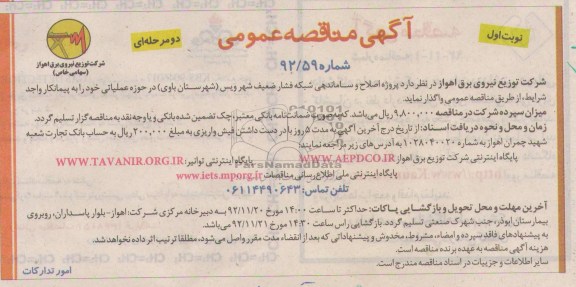 نوبت اول
آگهی مناقصه عمومی
دو مرحله‌ای
شرکت توزیع نیروی برق اهواز
(سهامی خاص)
شماره ۹۲/۵۹
شرکت توزیع نیروی برق اهواز در نظر دارد پروژه اصلاح و ساماندهی شبکه فشار ضعیف شهر ویس (شهرستان باوی) در حوزه عملیاتی خود را به پیمانکار واجد
شرایط، از طریق مناقصه عمومی واگذار نماید.
میزان سپرده شرکت در مناقصه ۹،۸۰۰،۰۰۰ ریال می‌باشد. که بصورت ضمانت نامه بانکی معتبر، چک تضمین شده بانکی و یا وجه نقد به مناقصه گزار تسلیم گردد.
زمان و محل و نحوه دریافت اسناد: از تاریخ درج آخرین آگهی به مدت ۵ روز با در دست داشتن فیش واریزی به مبلغ ۲۰۰،۰۰۰ ریال به حساب بانک تجارت شعبه
شهید چمران اهواز به شماره ۱۰۲۸۰۴۰۰۲۰ به آدرس‌های زیر مراجعه نمایند:
پایگاه اینترنتی شرکت توزیع برق اهواز WWW.AEPDCO.IR پایگاه اینترنتی توانیر: WWW.TAVANIR.ORG.IR
پایگاه اینترنتی ملی اطلاع رسانی مناقصات www.iets.mporg.ir
ParsNamadData
تلفن تماس: ۰۶۱۱۴۴۹۰۶۴۳
آخرین مهلت و محل تحویل و بازگشایی پاکات: حداکثر تا ساعت ۱۴:۰۰ مورخ ۹۲/۱۱/۲۰ به دبیرخانه مرکزی شرکت: اهواز - بلوار پاسداران، روبروی
بیمارستان ابوذر، جنب شهرک صنعتی تسلیم گردد. بازگشایی راس ساعت ۱۴:۳۰ مورخ ۹۲/۱۱/۲۱ می‌باشد.
به پیشنهادهای فاقد سپرده و امضاء، مشروط، مخدوش و پیشنهاداتی که بعد از انقضاء مدت مقرر واصل می‌شود، مطلقا ترتیب اثر داده نخواهد شد.
هزینه آگهی مناقصه به عهده برنده مناقصه است.
سایر اطلاعات و جزییات در اسناد مناقصه مندرج است.
امور تدارکات